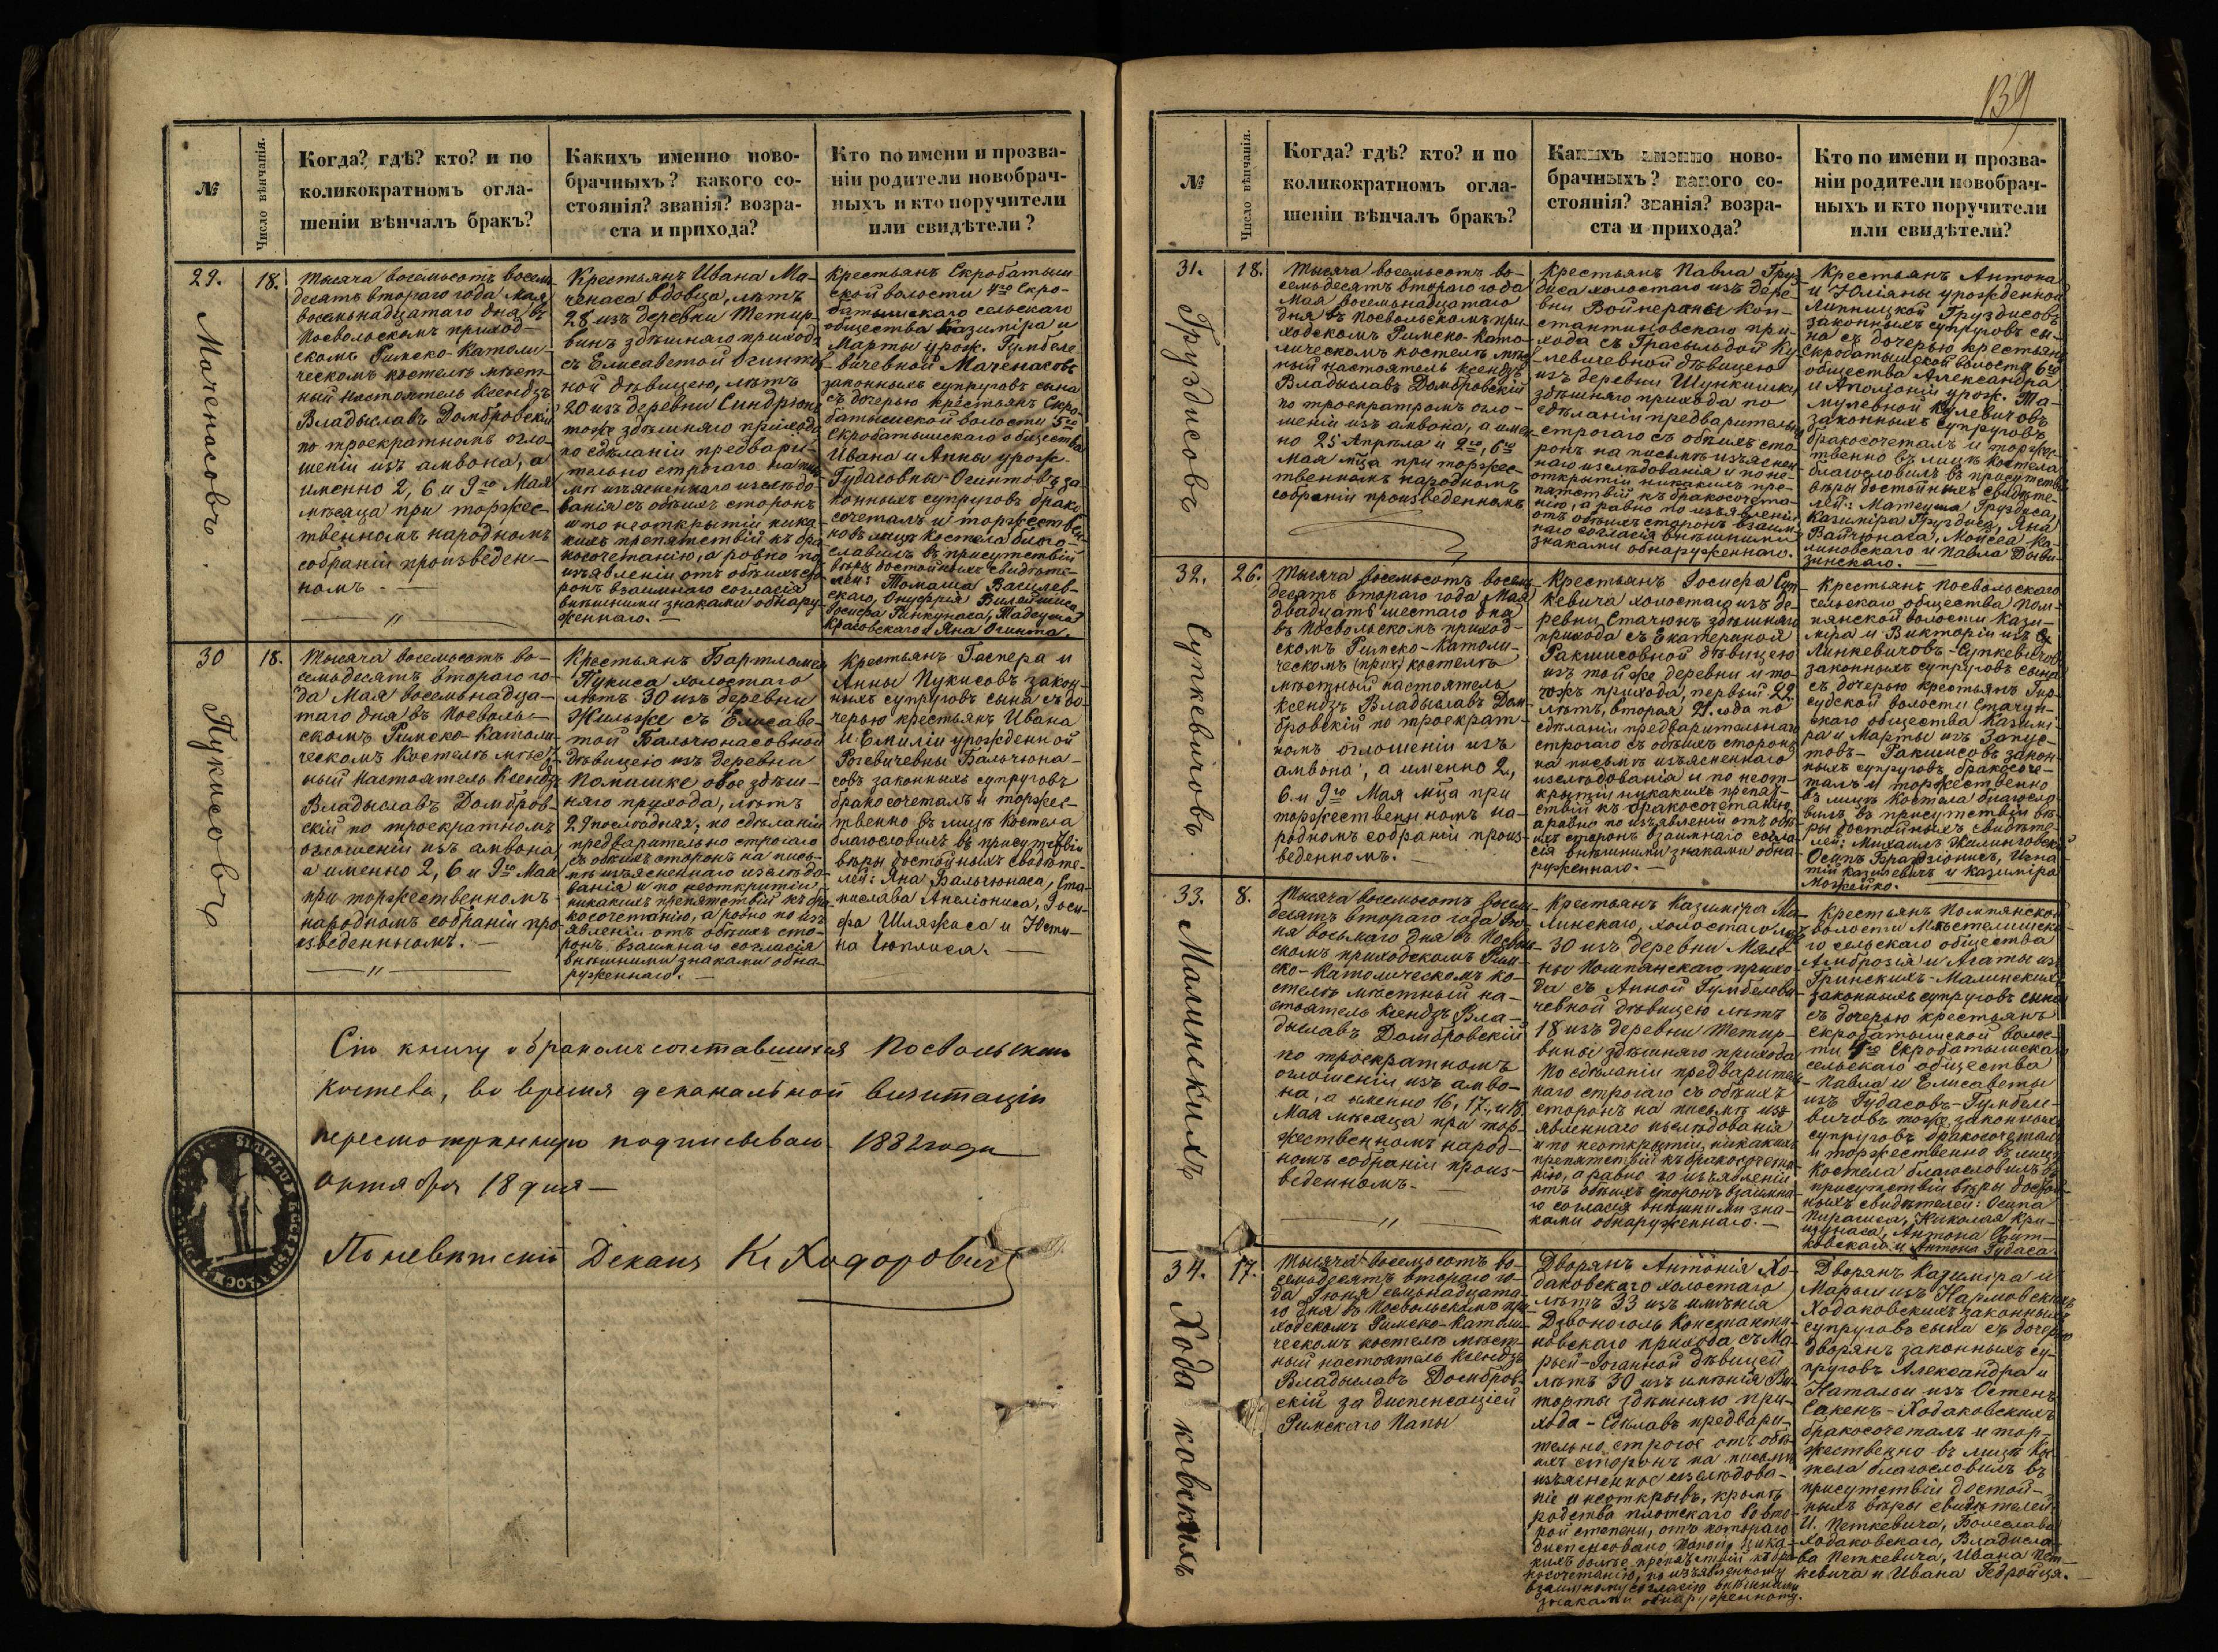 №
Число вѣнчанія.
Когда? гдѣ? кто? и по
коликократномъ огла-
шеніи вѣнчалъ бракъ?
Какихъ именно ново-
брачныхъ? какого со-
стоянія? званія? возра-
ста и прихода?
Кто по имени и прозва-
ніи родители новобрач-
ныхъ и кто поручители
или свидѣтели?
29.
Маченасовъ.
18.
Тысяча восемьсотъ восемь-
десятъ втораго года Мая
восемьнадцатаго дня въ
Посвольскомъ приход-
скомъ Римско-Католи-
ческомъ костелѣ мѣст-
ный настоятель Ксендзъ
Владыславъ Домбровскій
по троекратномъ огло-
шеніи изъ амвона, а
именно 2, 6 и 9го Мая
мѣсяца при торжес-
твенномъ народномъ
собраніи произведен-
номъ. —
Крестьянъ Ивана Ма-
ченаса вдовца, лѣтъ
28 изъ деревни Тетир-
винъ здѣшняго прихода
съ Елисаветой Огинтов-
ной дѣвицею, лѣтъ
20 изъ деревни Синдрюнъ
тоже здѣшняго прихода
по сдѣланіи предвари-
тельно строгаго на пись-
мѣ изъясненнаго изслѣдо-
ванія съ обѣихъ сторонъ
и по неоткрытіи ника-
кихъ препятствій къ бра-
косочетанію, а ровно по
изъявленіи отъ обѣихъ сто-
ронъ взаимнаго согласія
внѣшними знаками обнару-
женнаго. —
Крестьянъ Скробатыш-
ской волости 4го Скро-
батышскаго сельскаго
общества Казиміра и
Марты урож. Гумбеле-
вичевной Маченасовъ
законныхъ супруговъ сына
съ дочерью крестьянъ Скро-
батышской волости 5го
Скробатышскаго общества
Ивана и Анны урож.
Гудасовны Огинтовъ за-
конныхъ супруговъ брако-
сочеталъ и торжествен-
но въ лицѣ Костела благо-
словилъ въ присутствіи
вѣры достойныхъ свидѣте-
лей: Томаша Василев-
скаго, Онуфрія
Іосифа Ранкунаса, Тадеуша
Красовскаго и Яна Огинта.
30
Пукисовъ
18.
Тысяча восемьсотъ во-
семьдесятъ втораго го-
да Мая восемьнадца-
таго дня въ Посволь-
скомъ Римско-Католи-
ческомъ Костелѣ мѣст-
ный настоятель Ксендзъ
Владыславъ Домбров-
скій по троекратномъ
оглошеніи изъ амвона,
а именно 2, 6 и 9го Мая
при торжественномъ
народномъ собраніи про-
изведенномъ. —
Крестьянъ Бартломея
Пукиса холостаго
лѣтъ 30 изъ деревни
Жильже съ Елисаве-
той Бальчюнасовной
дѣвицею изъ деревни
Помашке обое здѣш-
няго прихода, лѣтъ
29 послѣдняя; по сдѣланіи
предварительно строгаго
съ обѣихъ сторонъ на пись-
мѣ изъясненнаго изслѣдо-
ванія и по неоткрытіи
никакихъ препятствій къ бра-
косочетанію, а ровно по изъ-
явленіи отъ обѣихъ сто-
ронъ взаимнаго согласія
внѣшними знаками обна-
руженнаго. —
Крестьянъ Гаспера и
Анны Пукисовъ закон-
ныхъ супруговъ сына съ до-
черью крестьянъ Ивана
и Емиліи урожденной
Рогевичевны Бальчюна-
совъ законныхъ супруговъ
бракосочеталъ и торжес-
твенно въ лицѣ Костела
благословилъ въ присутствіи
вѣры достойныхъ свидѣте-
лей: Яна Бальчюнаса, Ста-
нислава Анеліониса, Іоси-
фа Шляжаса и Юсти-
на
Сію книгу о бракомъ сочетавшихся Посвольскаго
костела, во время деканальной визитаціи
пересмотрѣнную подписываю 1882 года
Октября 18 дня —
Поневѣжскій Деканъ Кс Ходоровичъ
139
№
Число вѣнчанія.
Когда? гдѣ? кто? и по
коликократномъ огла-
шеніи вѣнчалъ бракъ?
Какихъ именно ново-
брачныхъ? какого со-
стоянія? званія? возра-
ста и прихода?
Кто по имени и прозва-
ніи родители новобрач-
ныхъ и кто поручители
или свидѣтели?
31.
Груздисовъ
18.
Тысяча восемьсотъ во-
семьдесятъ втораго года
Мая восемьнадцатаго
дня въ Посвольскомъ при-
ходскомъ Римско-Като-
лическомъ костелѣ мѣст-
ный настоятель ксендзъ
Владыславъ Домбровскій
по троекратномъ огло-
шеніи изъ амвона, а имен-
но 25 Апрѣля и 2го, 6го
Мая мца при торжес-
твенномъ народномъ
собраніи произведенномъ
Крестьянъ Павла Груз-
диса холостаго изъ дере-
вни Войнераны Кон-
стантиновскаго при-
хода съ Грасыльдой Ку-
левичевной дѣвицею
изъ деревни Шункишки
здѣшняго прихода по
сдѣланіи предварительно
строгаго съ обѣихъ сто-
ронъ на письмѣ изъяснен-
наго изслѣдованія и по не-
открытіи никакихъ пре-
пятствій къ бракосочета-
нію, а равно по изъявленіи
отъ обѣихъ сторонъ взаим-
наго согласія внѣшними
знаками обнаруженнаго. —
Крестьянъ Антона
и Юліяны урожденной
Липницкой Груздисовъ
законныхъ супруговъ сы-
на съ дочерью крестьянъ
Скробатышской волости 6го
общества Александра
и Аполоніи урож. Та-
мулевной Кулевичовъ
законныхъ супруговъ
бракосочеталъ и торжес-
твенно въ лицѣ костела
благословилъ въ присутствіи
вѣры достойныхъ свидѣте-
лей: Матеуша Груздиса,
Казиміра Груздиса, Яна
Вайчюнаса, Мойсея Ка-
линовскаго и Павла Дови-
зинскаго. —
32.
Супкевичовъ.
26.
Тысяча восемьсотъ восемь-
десятъ втораго года Мая
двадцать шестаго дня
въ Посвольскомъ приход-
скомъ Римско-Католи-
ческомъ (прих) костелѣ
мѣстный настоятель
Ксендзъ Владыславъ Дом-
бровскій по троекрат-
номъ оглошеніи изъ
амвона, а именно 2,
6 и 9го Мая мца при
торжественномъ на-
родномъ собраніи произ-
веденномъ. —
Крестьянъ Іосифа Суп-
кевича холостаго изъ де-
ревни Стачюнъ здѣшняго
прихода съ Екатериной
Ракшисовной дѣвицею
изъ той же деревни и то-
гожъ прихода, первый 22.
лѣтъ, вторая 21. года по
сдѣланіи предварительнаго
строгаго съ обѣихъ сторонъ
на письмѣ изъясненнаго
изслѣдованія и по неот-
крытіи никакихъ препят-
ствій къ бракосочетанію,
а равно по изъявленіи отъ обѣ-
ихъ сторонъ взаимнаго согла-
сія внѣшними знаками обна-
руженнаго. —
Крестьянъ Посвольскаго
сельскаго общества Пом-
пянской волости Кази-
міра и Викторіи изъ
Линкевичовъ-Супкевичовъ
законныхъ супруговъ сына
съ дочерью крестьянъ Гир-
судской волости Стачун-
скаго общества Казимі-
ра и Марты изъ Запус-
товъ - Ракшисовъ закон-
ныхъ супруговъ бракосоче-
талъ и торжественно
въ лицѣ Костела благосло-
вилъ въ присутствіи вѣ-
ры достойныхъ свидѣте-
лей: Михаилъ
Осипъ Игна-
тій Казилевичъ и Казиміра
Можейко.
33.
Малинскихъ
8.
Тысяча восемьсотъ восемь-
десятъ втораго года Ію-
ня восьмаго дня въ Посволь-
скомъ приходскомъ Рим-
ско-Католическомъ ко-
стелѣ мѣстный на-
стоятель Ксендзъ Вла-
дыславъ Домбровскій
по троекратномъ
оглошеніи изъ амво-
на, а именно 16, 17, и 18,
Мая мѣсяца при тор-
жественномъ народ-
номъ собраніи произ-
веденномъ. —
Крестьянъ Казиміра Ма-
линскаго, холостаго лѣтъ
30 изъ деревни
Помпянскаго прихо-
да съ Анной Гумбелеви-
чевной дѣвицею лѣтъ
18 изъ деревни Тетир-
вины здѣшняго прихода
по сдѣланіи предваритель-
наго строгаго съ обѣихъ
сторонъ на письмѣ изъ-
явленнаго изслѣдованія
и по неоткрытіи никакихъ
препятствій къ бракосочета-
нію, а равно по изъявленіи
отъ обѣихъ сторонъ взаимна-
го согласія внѣшними зна-
ками обнаруженнаго. —
Крестьянъ Помпянской
волости
го сельскаго общества
Амброзія и Агаты изъ
Гринскихъ-Малинскихъ
законныхъ супруговъ сына
съ дочерью крестьянъ
Скробатышской волос-
ти 4го Скробатышскаго
сельскаго общества
Павла и Елисаветы
изъ Гудасовъ-Гумбеле-
вичовъ тоже законныхъ
супруговъ бракосочеталъ
и торжественно въ лицѣ
Костела благословилъ въ
присутствіи вѣры достой-
ныхъ свидѣтелей: Осипа
Пирагиса, Николая Кри-
щунаса, Антона Свит-
ковскаго и Антона Гудаса.
34.
Ходаковскихъ
17.
Тысяча восемьсотъ во-
семьдесятъ втораго го-
да Іюня семьнадцата-
го дня въ Посвольскомъ при-
ходскомъ Римско-Католи-
ческомъ костелѣ мѣст-
ный настоятель Ксендзъ
Владыславъ Домбров-
скій за диспенсаціей
Римскаго Папы
Дворянъ Антонія Хо-
даковскаго холостаго
лѣтъ 33 изъ имѣнія
Двоноголь Константи-
новскаго прихода съ Ма-
рьей-Іоганной дѣвицей
лѣтъ 30 изъ имѣнія Ви-
торты здѣшняго при-
хода - Сдѣлавъ предвари-
тельно строгое отъ обѣ-
ихъ сторонъ на письмѣ
изъясненное изслѣдова-
ніе и неоткрывъ, кромѣ
родства плотскаго во вто-
рой степени, отъ котораго
диспенсовано Папой, ника-
кихъ болѣе препятствій къ бра-
косочетанію, по изъявленному
взаимному согласію внѣшними
знаками обнаруженному.
Дворянъ Казиміра и
Марьи изъ Нармовскихъ
Ходаковскихъ законныхъ
супруговъ сына съ дочерью
дворянъ законныхъ су-
пруговъ Александра и
Натальи изъ Остенъ
Сакенъ-Ходаковскихъ
бракосочеталъ и тор-
жественно въ лицѣ Кос-
тела благословилъ въ
присутствіи достой-
ныхъ вѣры свидѣтелей:
И. Петкевича, Болеслава
Ходаковскаго, Владисла-
ва Петкевича, Ивана Пет-
кевича и Ивана Гедройця. —